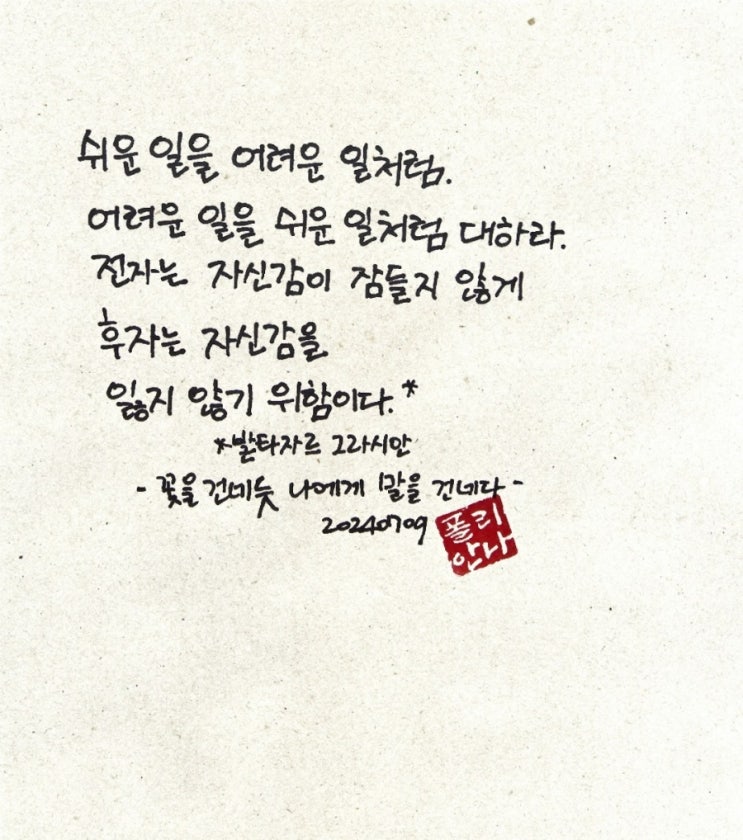 쉬운 일을 어려운 일처럼.
어려운 일을 쉬운 일처럼 대하라.
전자는 자신감이 잠들지 않게
후자는 자신감을
잃지 않기 위함이다.*
*발타자르 그라시안
- 꽃을 건네듯 나에게 말을 건네다 -
20240709
폴리
안나